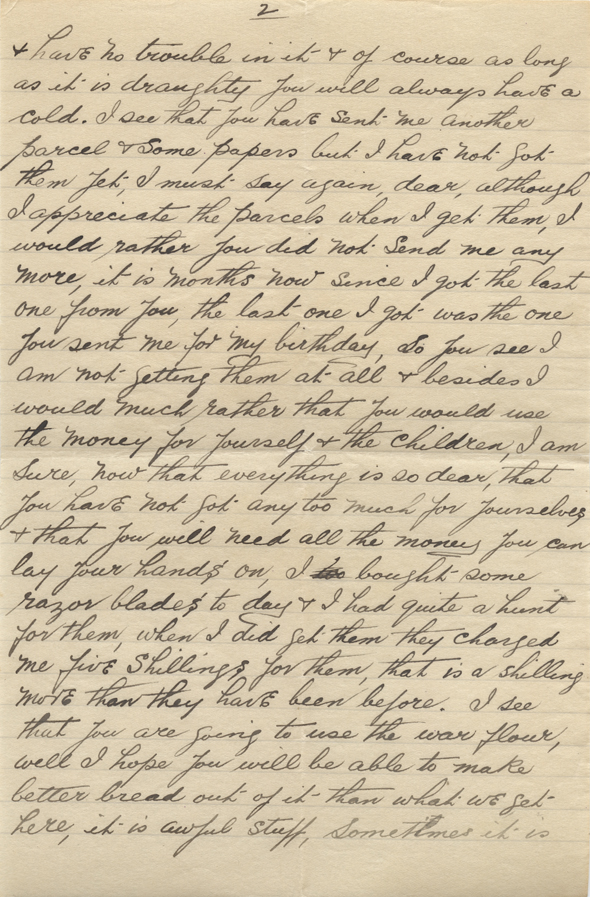 2
& have no trouble in it & of course as long
as it is draughty you will always have a
cold. I see that you have sent me another
parcel & some papers but I have not got
them yet, I must say again, dear, although
I appreciate the parcels when I get them, I
would rather you did not send me any
more, it is months now since I got the last
one from you, the last one I got was the one
you sent me for my birthday, so you see I
am not getting them at all & besides I
would much rather that you would use
the money for yourself & the children, I am
sure, now that everything is so dear, that
you have not got any too much for yourselves
& that you will need all the money you can
lay your hands on, I bought some
razor blades to day & I had quite a hunt
for them, when I did get them they charged
me five shillings for them, that is a shilling
more than they have been before. I see
that you are going to use the war flour,
well I hope you will be able to make
better bread out of it than what we get
here, it is awful stuff, sometimes it is